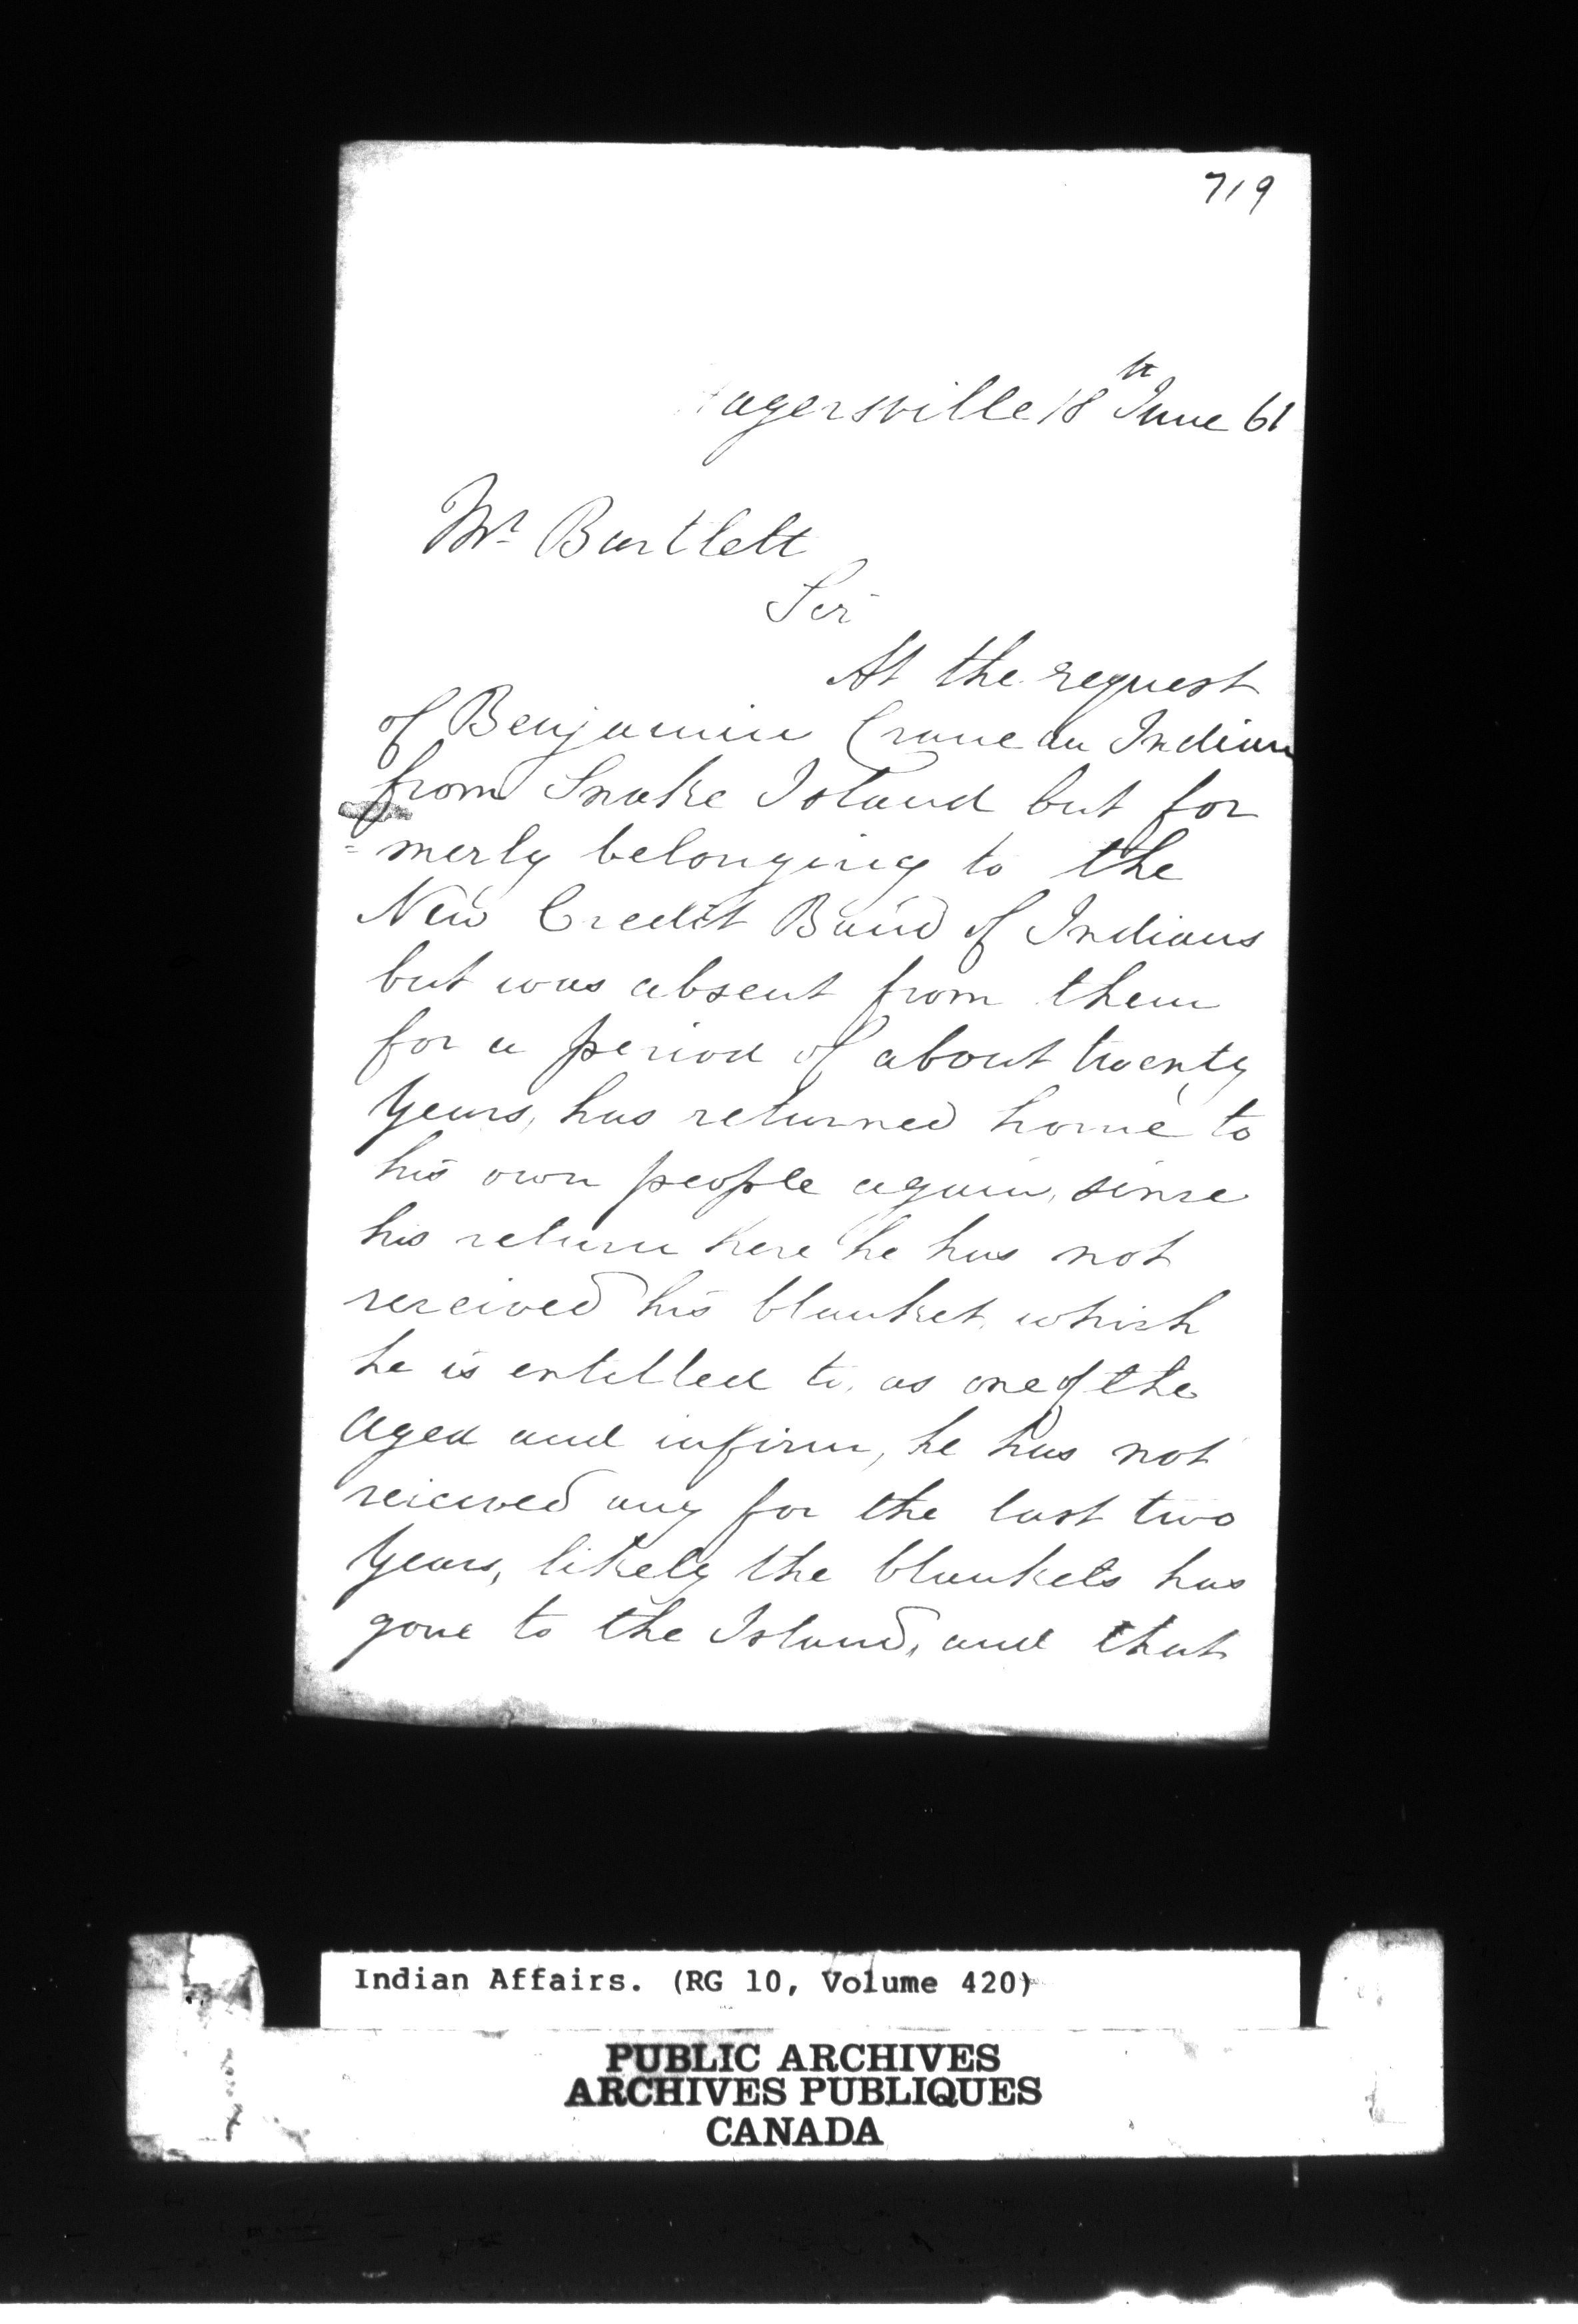 719
Hagersville 18th June 61
Mr Bartlett
Sir
At the request
of Benjamin Crane an Indian
from Snake Island but for
= merly belonging to the
New Credit Band of Indians
but was absent from them
for a period of about twenty
Years, has returned home to
his own people again, since
his return here he has not
received his blanket, which
he is entitled to, as one of the
aged and infirm, he has not
reicieved any for the last two
Years, likely the blankets has
gone to the Island, and that
Indian Affairs. (RG 10, Volume 420)
PUBLIC ARCHIVES
ARCHIVES PUBLIQUES
CANADA